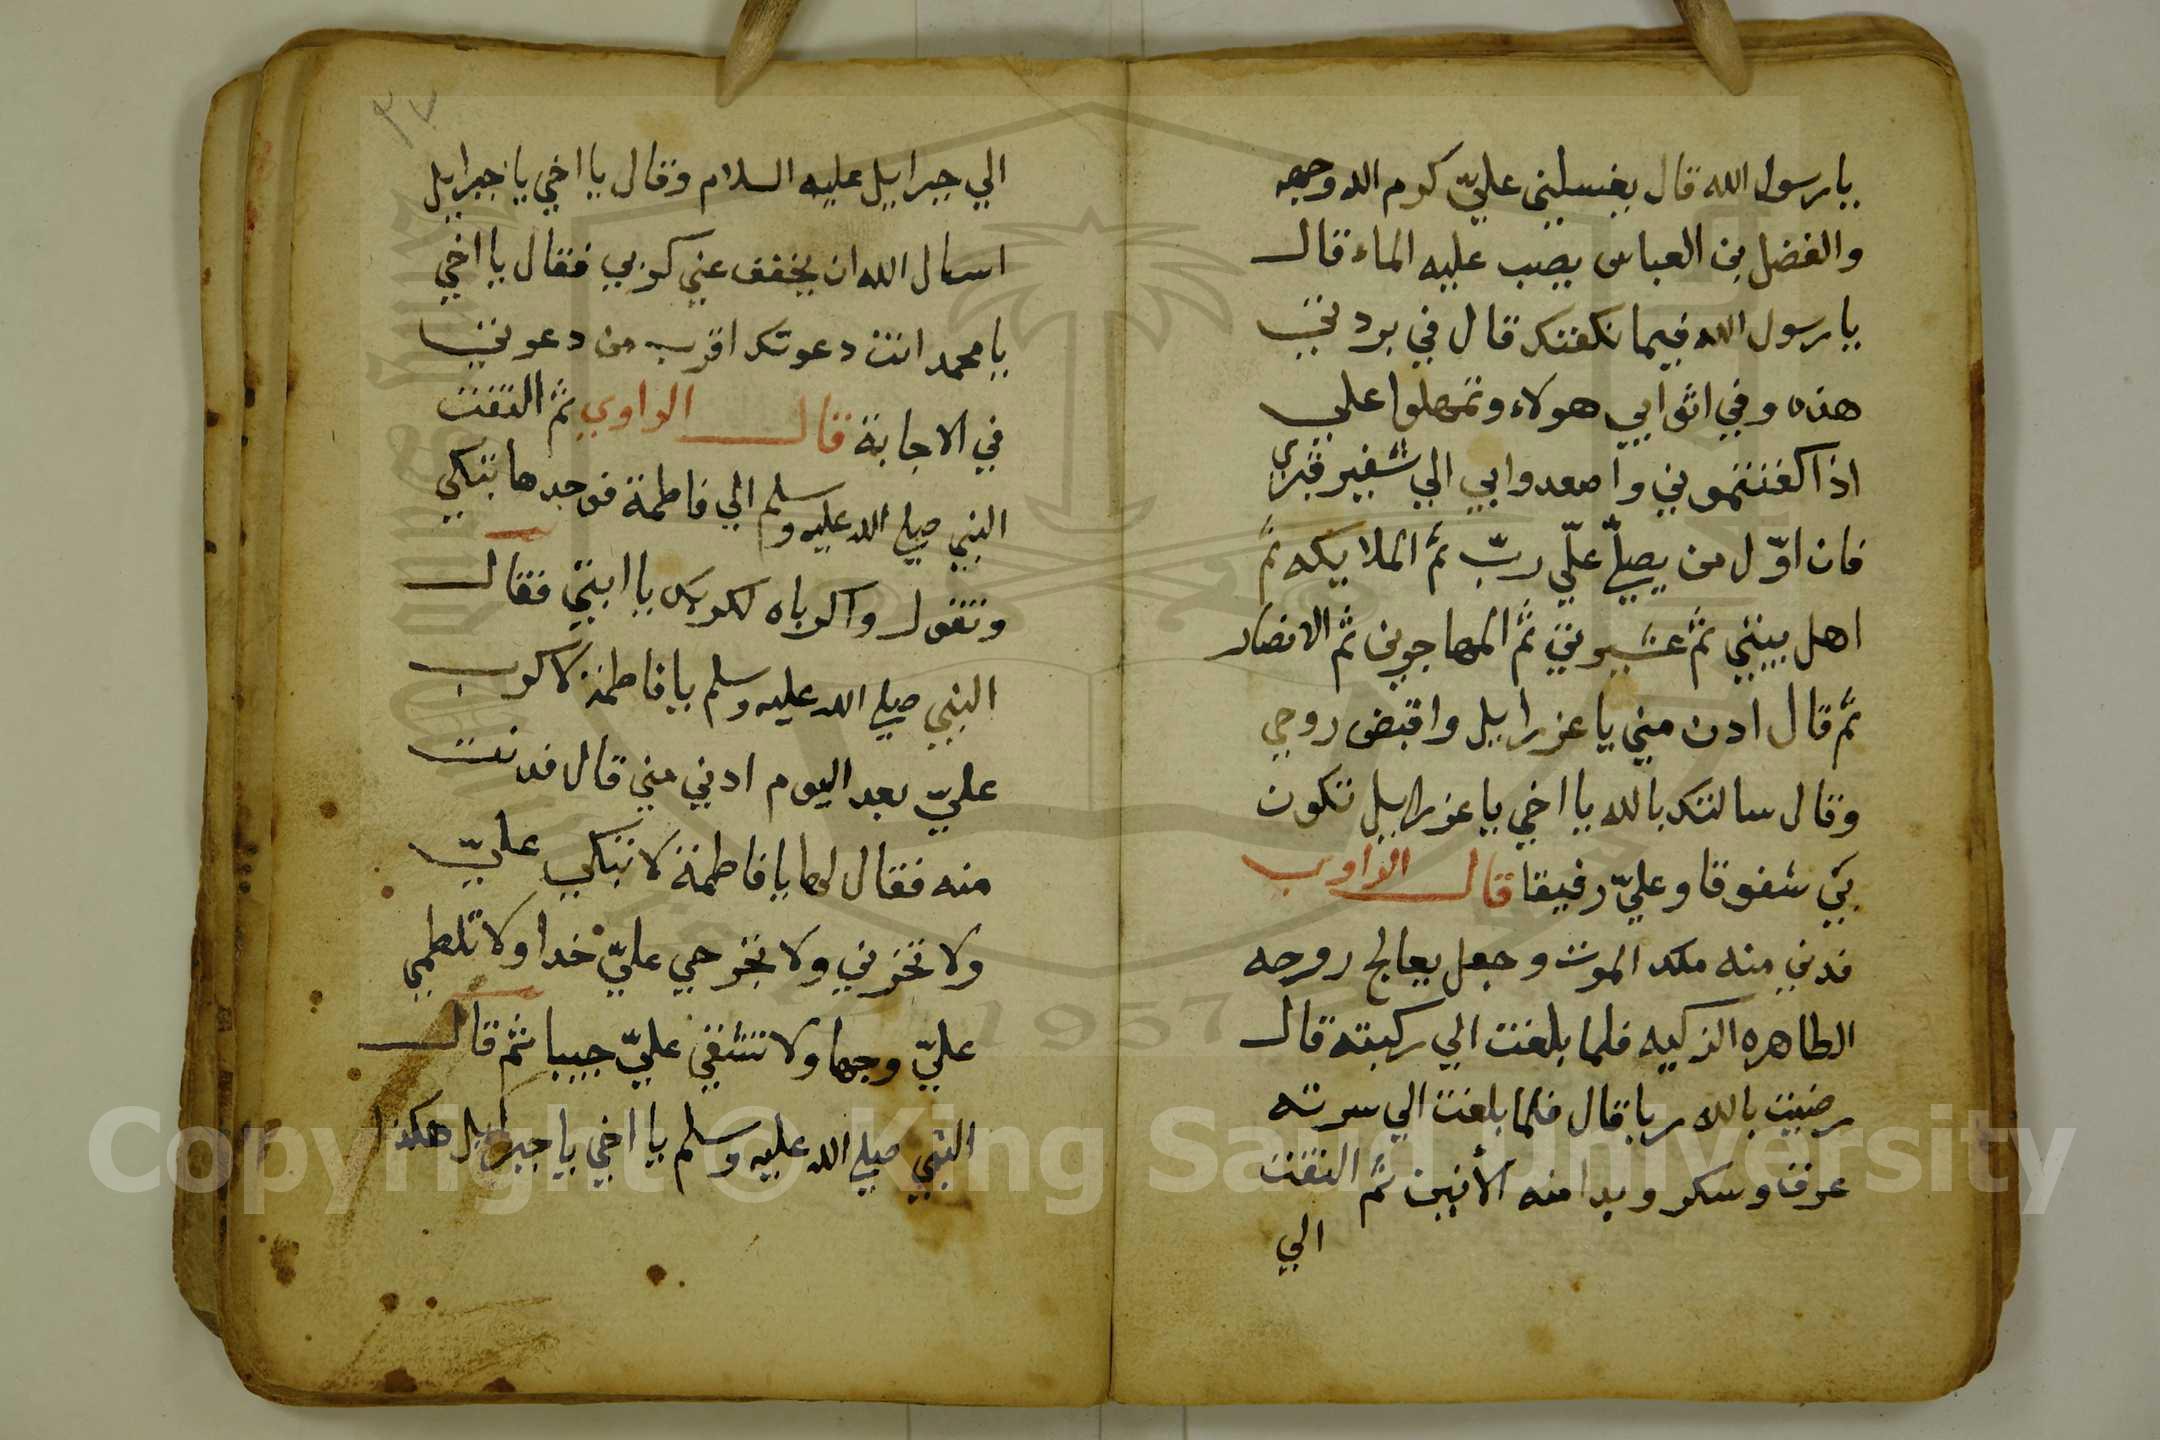 يا رسول الله قال يغسلني عليّ كرم الله وجهه
والفضل بن العباس يصب عليه الماء قال
يا رسول الله فيما نكفنك قال في بردتي
هذه وفي اثوابي هولاء وتمهلوا علي
اذا كفنتموني واصعدوا بي الي شفير قبري
فان اوّل من يصلّي علّي ربّي ثم الملايكه ثم
اهل بيتي ثم عشيرتي ثم المهاجرين ثم الانصار
ثم قال ادن مني يا عزراييل واقبض روحي
وقال سالتك بالله يا اخي يا عزراييل تكون
بي شفوقا وعليّ رفيقا قال الراوي
فدني منه ملك الموت وجعل يعالج روحه
الطاهره الزكيه فلما بلغت الي ركبته قال
رضيت بالله ربا قال فلما بلغت الي سرته
عرق وسكر وبدا منه الأنين ثم التفت
الي
٣٧
الي جبراييل عليه السلام وقال يا اخي يا جبراييل
اسال الله ان يخفف عني كربي فقال يا اخي
يا محمد انت دعوتك اقرب من دعوتي
في الاجابة قال الراوي ثم التفت
النبي صلي الله عليه وسلم الي فاطمة فوجدها تبكي
وتقول واكرباه لكربك يا ابتي فقال
النبي صلي الله عليه وسلم يا فاطمة لا كرب
عليّ بعد اليوم ادني مني قال فدنت
منه فقال لها يا فاطمة لا تبكي عليّ
ولا تحزني ولا تجرحي عليّ خدا ولا تلطمي
عليّ وجها ولا تشقي عليّ جيبا ثم قال
النبي صلي الله عليه وسلم يا اخي يا جبراييل هكذا
Copyright © King Saud University
1957